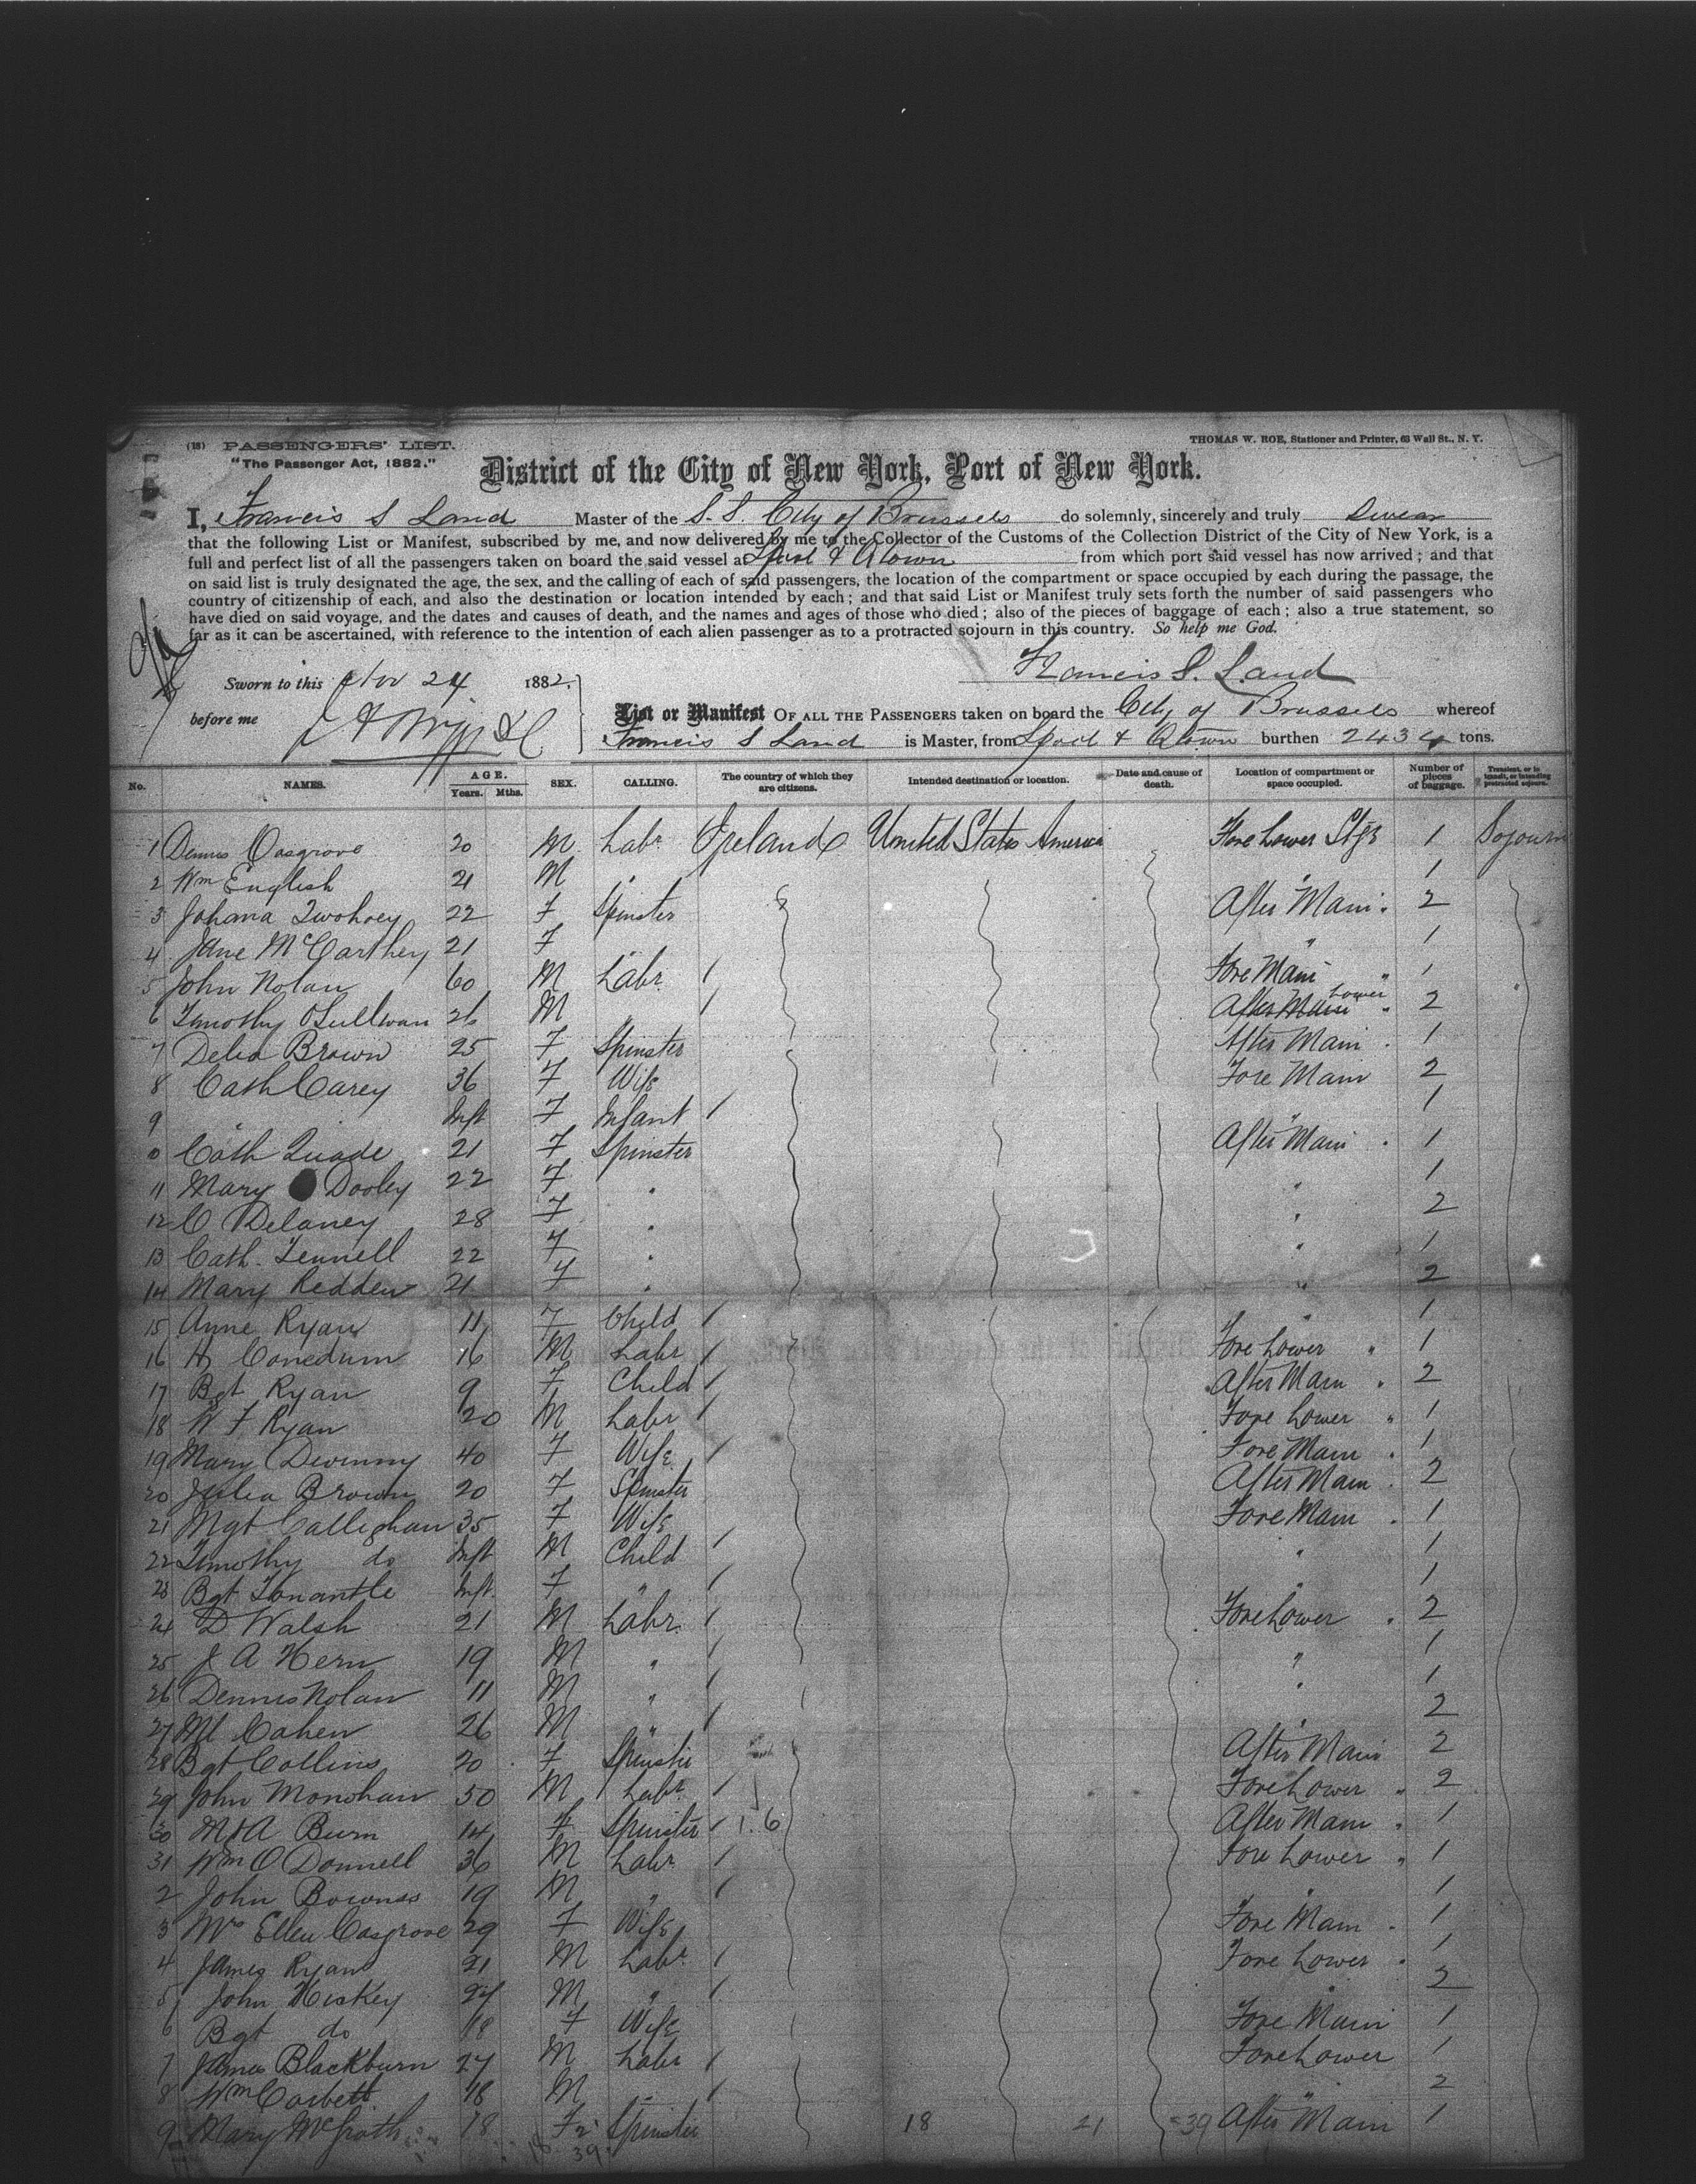 (13) PASSENGERS' LIST.
THOMAS W. ROE, Stationer and Printer, 63 Wall St., N. Y.
"The Passenger Act, 1882."
District of the City of New York, Port of New York.
I, Francis S Land Master of the S. S. City of Brussels do solemnly, sincerely and truly Swear
that the following List or Manifest, subscribed by me, and now delivered by me to the Collector of the Customs of the Collection District of the City of New York, is a
full and perfect list of all the passengers taken on board the said vessel at Lpool & Qtown from which port said vessel has now arrived; and that
on said list is truly designated the age, the sex, and the calling of each of said passengers, the location of the compartment or space occupied by each during the passage, the
country of citizenship of each, and also the destination or location intended by each; and that said List or Manifest truly sets forth the number of said passengers who
have died on said voyage, and the dates and causes of death, and the names and ages of those who died; also of the pieces of baggage of each; also a true statement, so
far as it can be ascertained, with reference to the intention of each alien passenger as to a protracted sojourn in this country. So help me God.
Francis S. Land
Sworn to this Nov 24 1882.
before me
List or Manifest OF ALL THE PASSENGERS taken on board the City of Brussels whereof
Francis S Land is Master, from Lpool & Qtown burthen 2434 tons.
No. NAMES. AGE. Years. Mths. SEX. CALLING. The country of which they are citizens. Intended destination or location. Date and cause of death. Location of compartment or space occupied. Number of pieces of baggage. Transient, or in transit, or intending protracted sojourn.
1 Dennis Cosgrove 20 M Labr Ireland United States America Fore Lower Stge 1 Sojourn
2 Wm English 21 M " " 1
3 Johana Twohoey 22 F Spinster After Main " 2
4 Jane McCarthey 21 F " " 1
5 John Nolan 60 M Labr / Fore Main " 1
6 Timothy OSullivan 26 M " / After Main Lower " 2
7 Delia Brown 25 F Spinster After Main " 1
8 Cath Carey 36 F Wife Fore Main 2
9 " Inft F Infant / " 1
0 Cath Quade 21 F Spinster After Main " 1
11 Mary Dooley 22 F " " 1
12 C Delaney 28 F " " 2
13 Cath. Fennell 22 F " " 1
14 Mary Redden 21 F " " 2
15 Anne Ryan 11 F Child / " 1
16 H Conedum 16 M Labr / Fore Lower " 1
17 Bgt Ryan 9 F Child / After Main " 2
18 W F Ryan 20 M Labr / Fore Lower " 1
19 Mary Devinny 40 F Wife / Fore Main " 1
20 Julia Brown 20 F Spinster After Main " 2
21 Mgt Calleghan 35 F Wife Fore Main " 1
22 Timothy do Inft M Child / " 1
23 Bgt Inft F " / " 1
24 D Walsh 21 M Labr / Fore Lower " 2
25 J A Hern 19 M " / " 1
26 Dennis Nolan 11 M " / " 1
27 Ml Cahen 26 M " / " 2
28 Bgt Collins 20 F Spinster After Main 2
29 John Monohan 50 M Labr / Fore Lower " 2
30 M A Burn 14 F Spinster / 1.6 After Main " 1
31 Wm O Donnell 36 M Labr / Fore Lower " 1
2 John Bowness 19 M " / " 1
3 Mrs Ellen Cosgrove 29 F Wife Fore Main " 1
4 James Ryan 21 M Labr / Fore Lower " 1
5 John Hickey 24 M " / " 2
6 Bgt do 18 F Wife Fore Main 1
7 James Blackburn 27 M Labr / Fore Lower 1
8 Wm Corbett 18 M " / " 2
9 Mary McGrath 18 F Spinster 18 21 =39 After Main 1
39